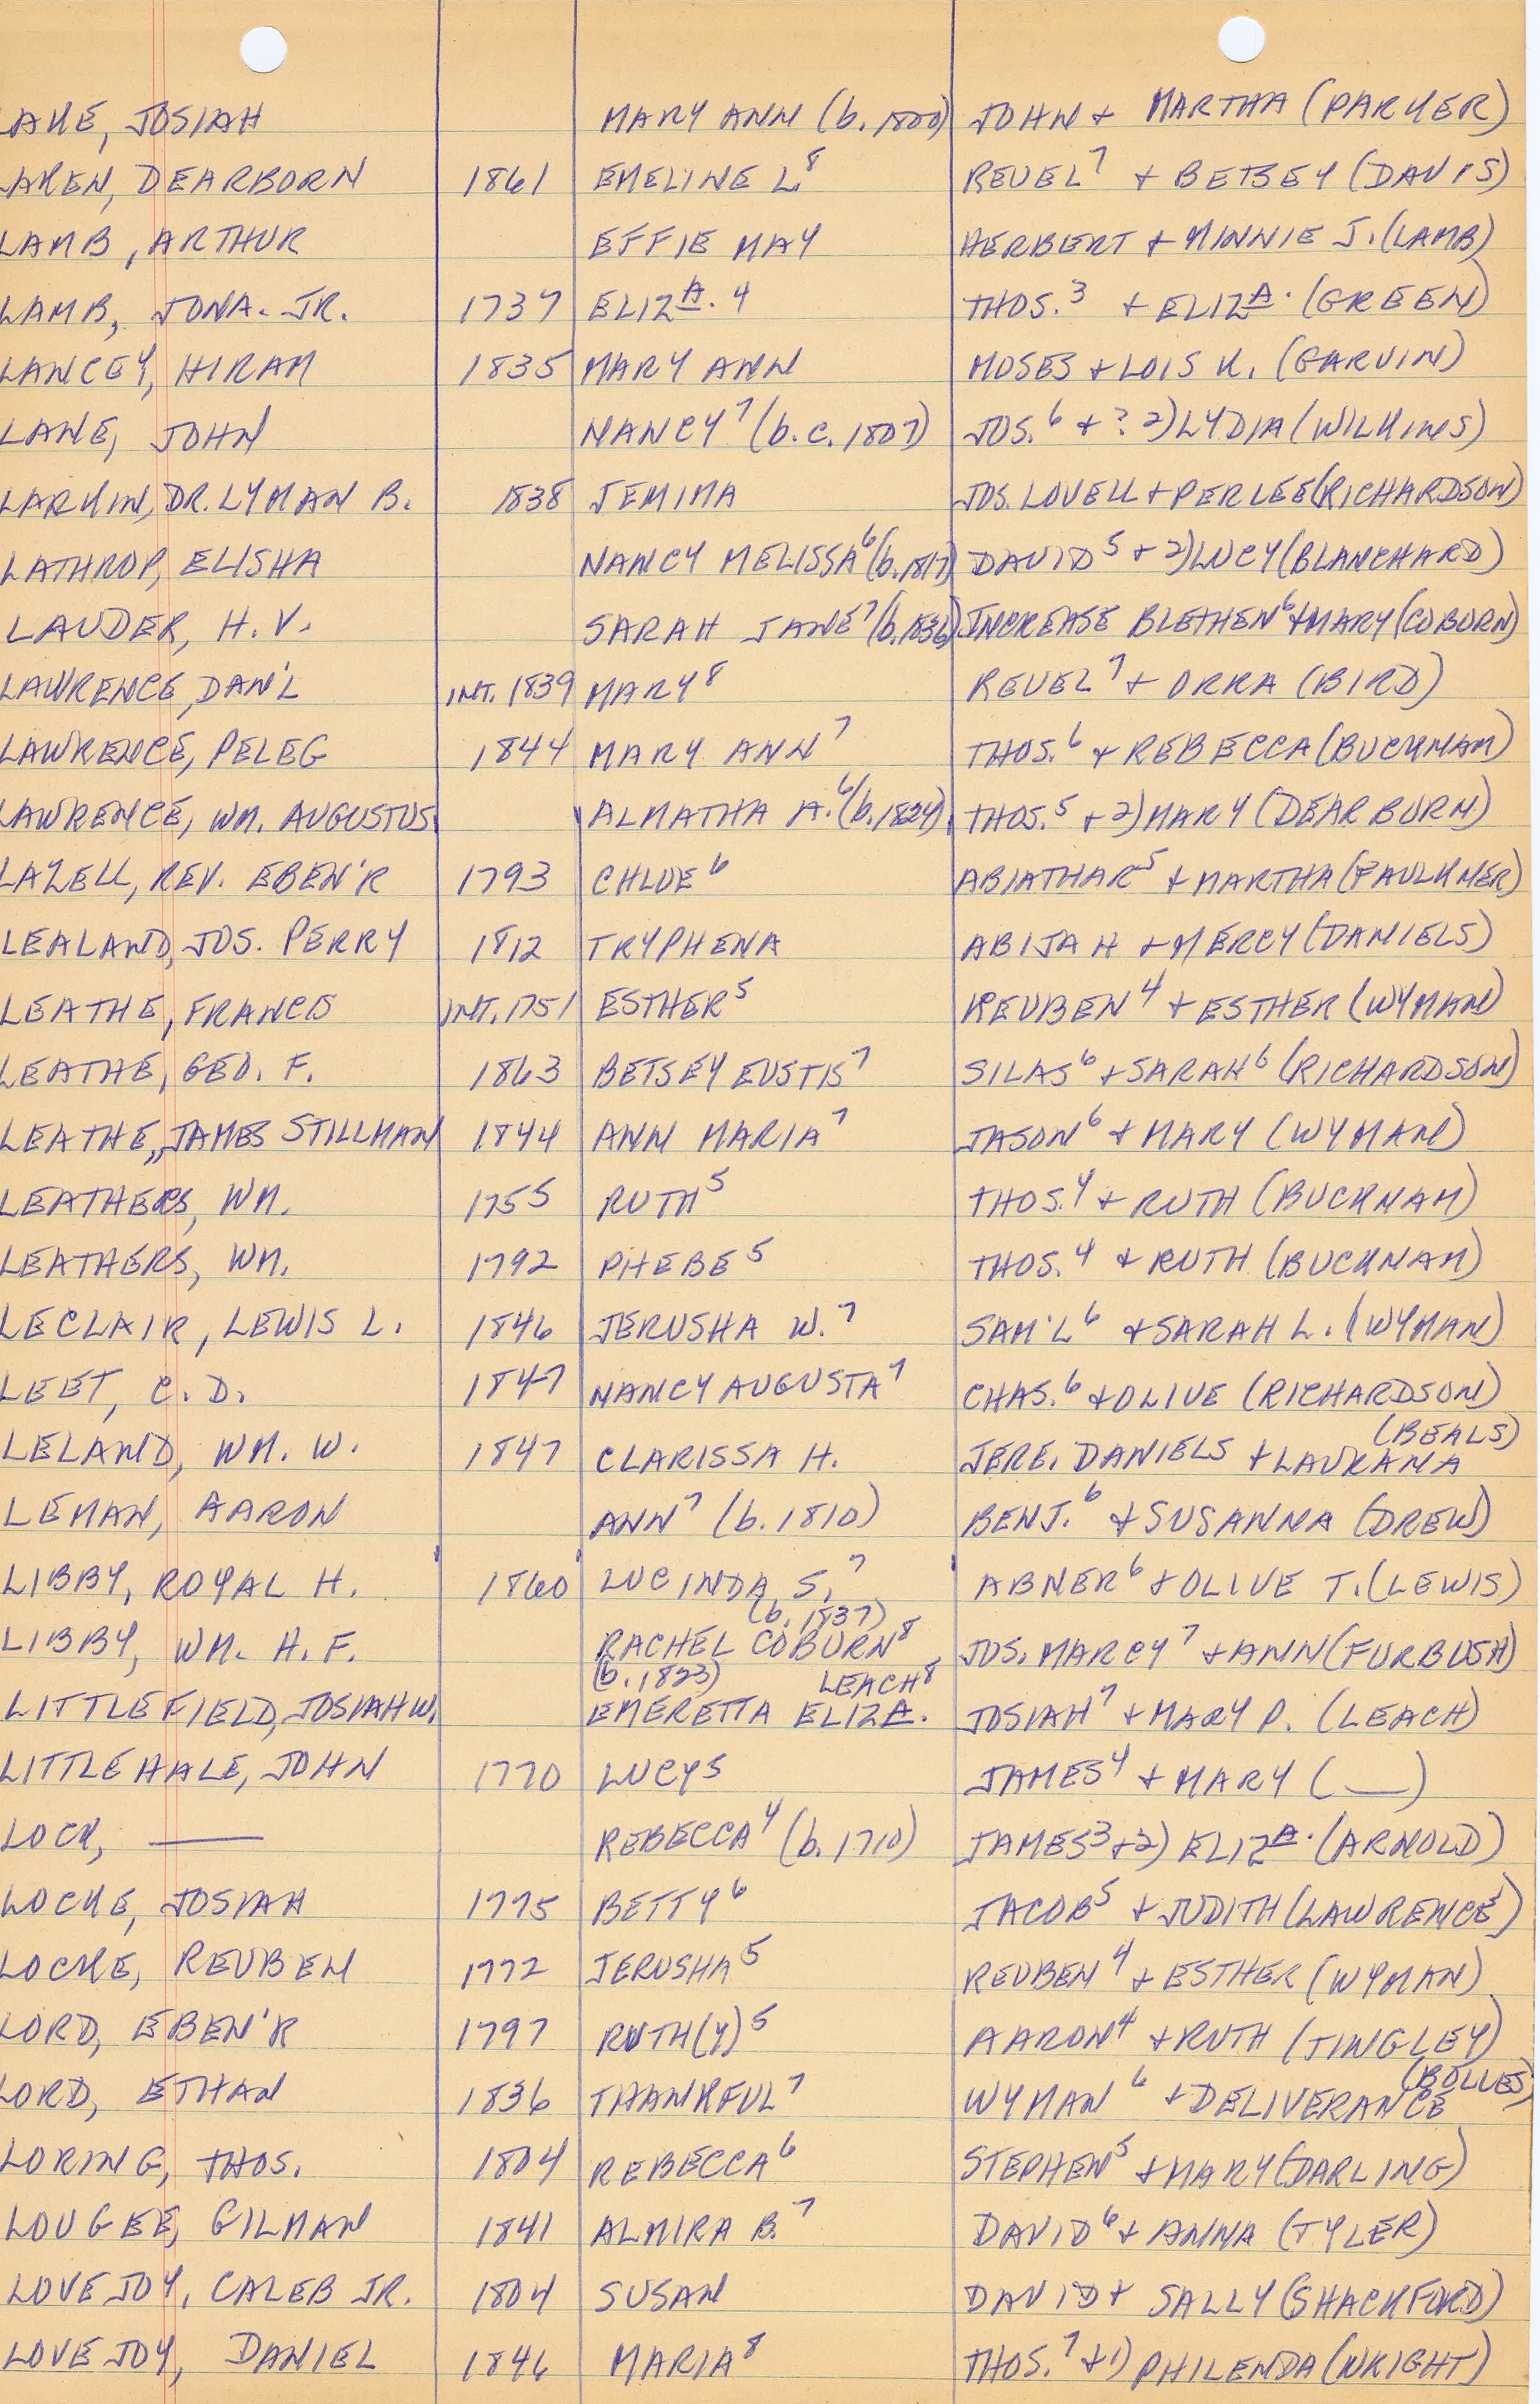 LAKE, JOSIAH MARY ANN (b. 1800) JOHN + MARTHA (PARKER)
LAKEN, DEARBORN 1861 EMELINE L.⁸ REUEL⁷ + BETSEY (DAVIS)
LAMB, ARTHUR EFFIE MAY HERBERT + MINNIE J. (LAMB)
LAMB, JONA. JR. 1737 ELIZA. 4 THOS.³ + ELIZA. (GREEN)
LANCEY, HIRAM 1835 MARY ANN MOSES + LOIS K. (GARVIN)
LANE, JOHN NANCY⁷ (b.c. 1807) JOS.⁶ + ? 2) LYDIA (WILKINS)
LARKIN, DR. LYMAN B. 1838 JEMIMA JOS. LOVELL + PERLEE (RICHARDSON)
LATHROP, ELISHA NANCY MELISSA⁶ (b. 1817) DAVID⁵ + 2) LUCY (BLANCHARD)
LAUDER, H. V. SARAH JANE⁷ (b. 1836) INCREASE BLETHEN⁶ + MARY (COBURN)
LAWRENCE, DAN'L INT. 1839 MARY⁸ REUEL⁷ + ORRA (BIRD)
LAWRENCE, PELEG 1844 MARY ANN⁷ THOS.⁶ + REBECCA (BUCKMAN)
LAWRENCE, WM. AUGUSTUS ALMATHA A.⁶ (b. 1824) THOS.⁵ + 2) MARY (DEARBORN)
LAZELL, REV. EBEN'R 1793 CHLOE⁶ ABIATHAR⁵ + MARTHA (FAULKNER)
LEALAND, JOS. PERRY 1812 TRYPHENA ABIJAH + MERCY (DANIELS)
LEATHE, FRANCIS INT. 1751 ESTHER⁵ REUBEN⁴ + ESTHER (WYMAN)
LEATHE, GEO. F. 1863 BETSEY EUSTIS⁷ SILAS⁶ + SARAH⁶ (RICHARDSON)
LEATHE, JAMES STILLMAN 1844 ANN MARIA⁷ JASON⁶ + MARY (WYMAN)
LEATHERS, WM. 1755 RUTH⁵ THOS.⁴ + RUTH (BUCKNAM)
LEATHERS, WM. 1792 PHEBE⁵ THOS.⁴ + RUTH (BUCKNAM)
LECLAIR, LEWIS L. 1846 JERUSHA W.⁷ SAM'L⁶ + SARAH L. (WYMAN)
LEET, C. D. 1847 NANCY AUGUSTA⁷ CHAS.⁶ + OLIVE (RICHARDSON)
LELAND, WM. W. 1847 CLARISSA H. JERE. DANIELS + LAURANA (BEALS)
LEMAN, AARON ANN⁷ (b. 1810) BENJ.⁶ + SUSANNA (DREW)
LIBBY, ROYAL H. 1860 LUCINDA S.⁷ ABNER⁶ + OLIVE T. (LEWIS)
(b. 1837)
LIBBY, WM. H. F. RACHEL COBURN⁸ JOS. MARCY⁷ + ANN (FURBUSH)
(b. 1823) LEACH⁸
LITTLEFIELD, JOSIAH W. EMERETTA ELIZA. JOSIAH⁷ + MARY P. (LEACH)
LITTLEHALE, JOHN 1770 LUCY⁵ JAMES⁴ + MARY (__)
LOCK, —— REBECCA⁴ (b. 1710) JAMES³ + 2) ELIZA. (ARNOLD)
LOCKE, JOSIAH 1775 BETTY⁶ JACOB⁵ + JUDITH (LAWRENCE)
LOCKE, REUBEN 1772 JERUSHA⁵ REUBEN⁴ + ESTHER (WYMAN)
LORD, EBEN'R 1797 RUTH(Y)⁵ AARON⁴ + RUTH (TINGLEY)
LORD, ETHAN 1836 THANKFUL⁷ WYMAN⁶ + DELIVERANCE (BOLLES)
LORING, THOS. 1804 REBECCA⁶ STEPHEN⁵ + MARY (DARLING)
LOUGEE, GILMAN 1841 ALMIRA B.⁷ DAVID⁶ + ANNA (TYLER)
LOVEJOY, CALEB JR. 1804 SUSAN DAVID + SALLY (SHACKFORD)
LOVEJOY, DANIEL 1846 MARIA⁸ THOS.⁷ + 1) PHILENDA (WRIGHT)